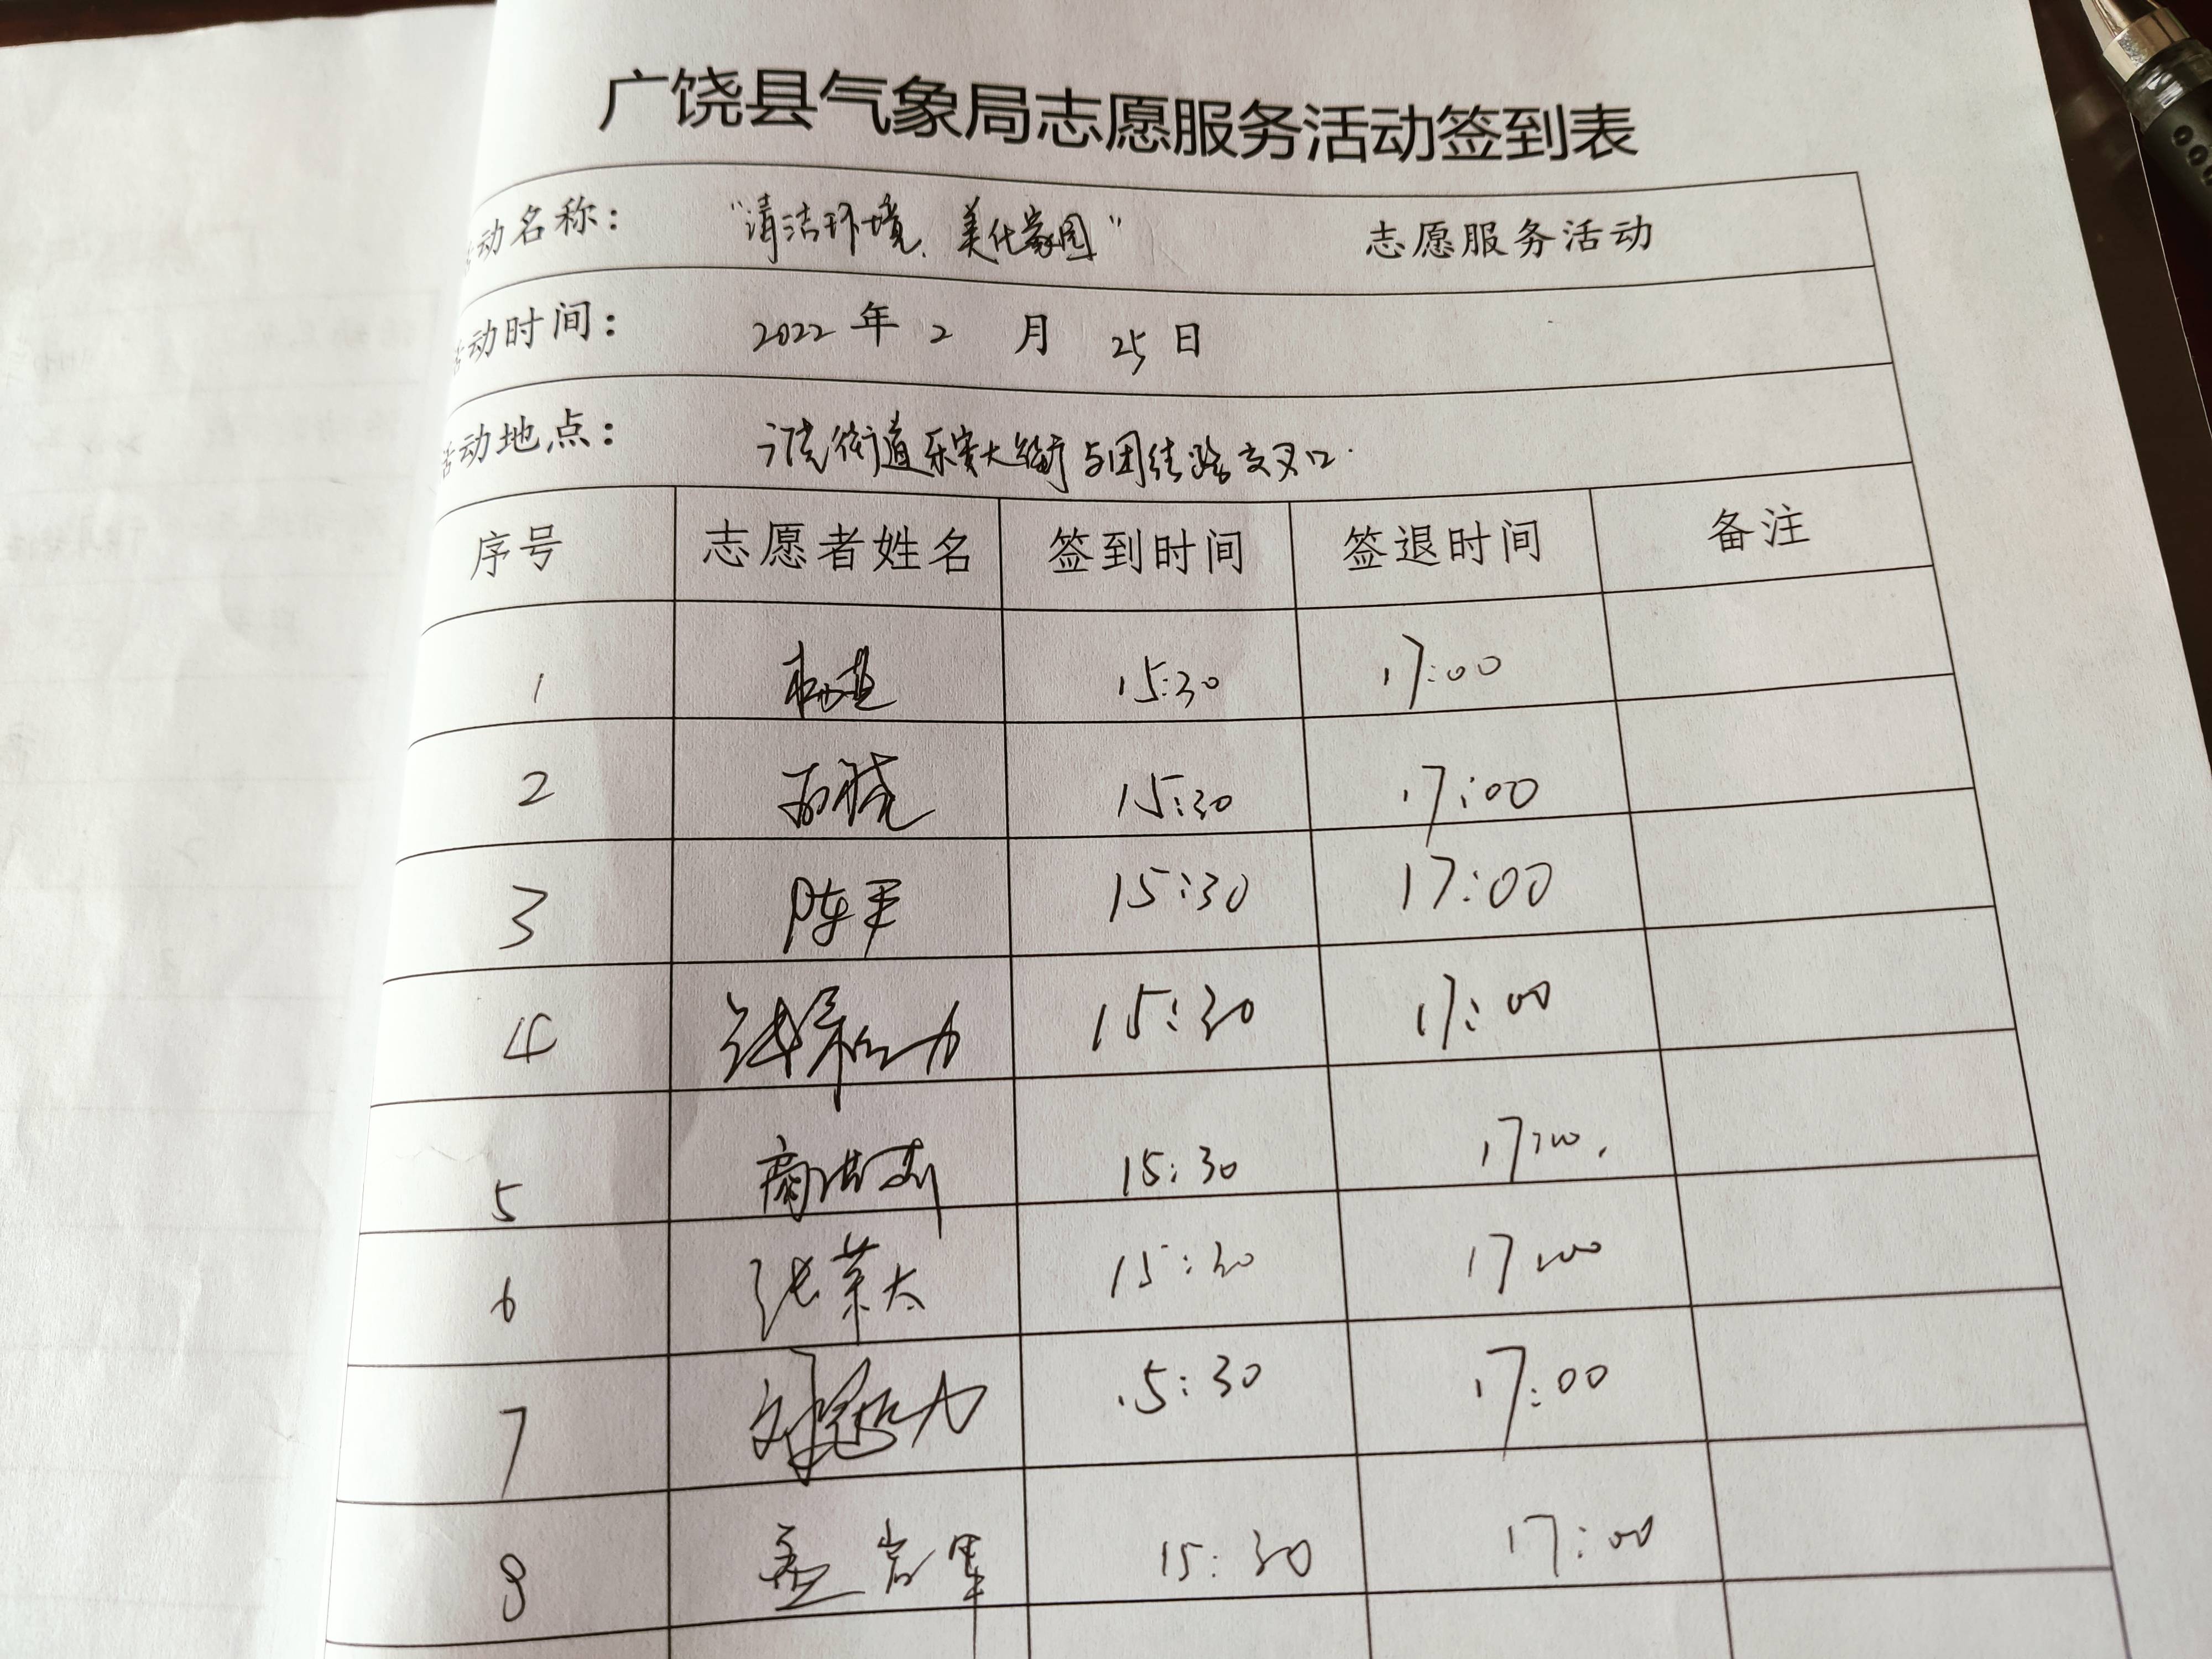 广饶县气象局志愿服务活动签到表
活动名称： “清洁环境、美化家园” 志愿服务活动
活动时间： 2022 年 2 月 25 日
活动地点： 街道乐安大街与团结路交叉口.
序号 志愿者姓名 签到时间 签退时间 备注
1 15:30 17:00
2 15:30 17:00
3 陈军 15:30 17:00
4 15:30 17:00
5 15:30 17:00.
6 张荣太 15:30 17:00
7 15:30 17:00
8 孟岩军 15:30 17:00